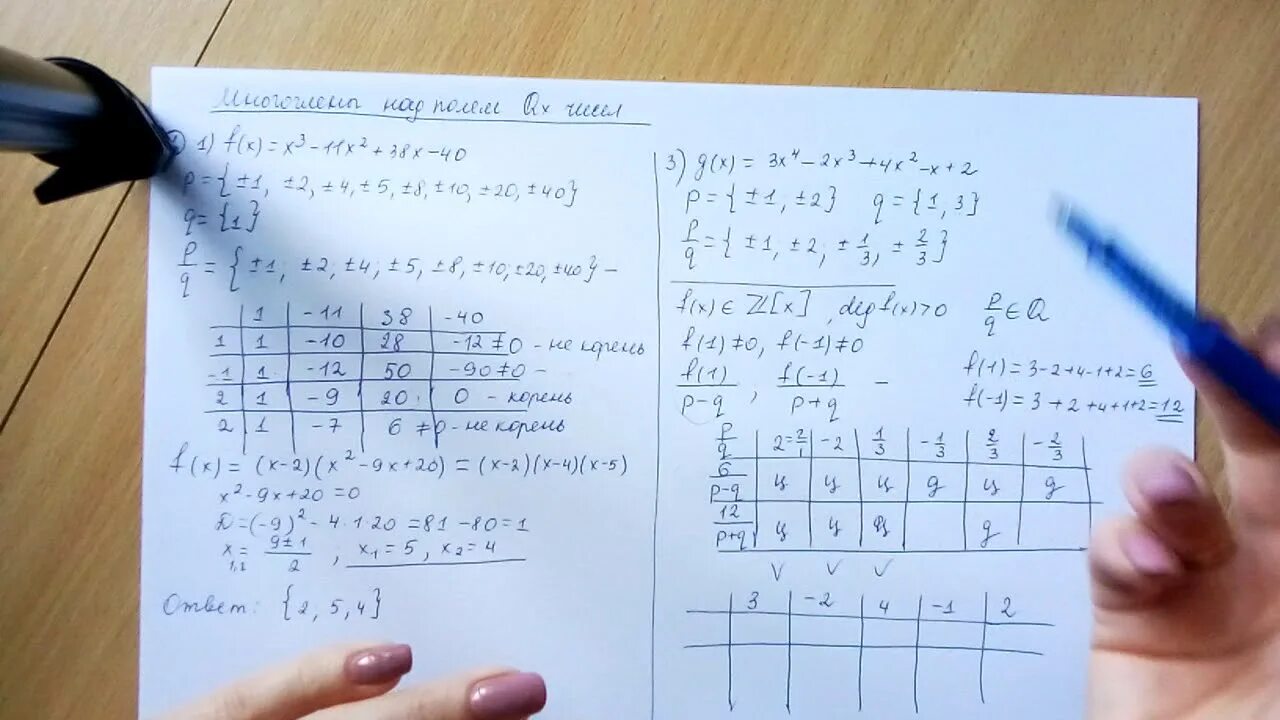 Многочлены над полем Qx чисел
1) f(x) = x³ - 11x² + 38x - 40
p = {±1, ±2, ±4, ±5, ±8, ±10, ±20, ±40}
q = {1}
p/q = {±1; ±2, ±4; ±5, ±8, ±10; ±20, ±40} –
1 | -11 | 38 | -40
1 | 1 | -10 | 28 | -12 ≠ 0 - не корень
-1 | 1 | -12 | 50 | -90 ≠ 0 -
2 | 1 | -9 | 20 | 0 - корень
2 | 1 | -7 | 6 ≠ 0 - не корень
f(x) = (x-2)(x² - 9x + 20) = (x-2)(x-4)(x-5)
x² - 9x + 20 = 0
D = (-9)² - 4·1·20 = 81 - 80 = 1
x₁,₂ = (9 ± 1)/2 , x₁ = 5, x₂ = 4
Ответ: {2, 5, 4}
3) g(x) = 3x⁴ - 2x³ + 4x² - x + 2
p = {±1, ±2} q = {1, 3}
p/q = {±1, ±2; ±1/3, ±2/3}
f(x) ∈ ℤ[x], deg f(x) > 0 p/q ∈ Q
f(1) ≠ 0, f(-1) ≠ 0
f(1)/(p-q) , f(-1)/(p+q) –
f(1) = 3-2+4-1+2 = 6
f(-1) = 3+2+4+1+2 = 12
p/q | 2 = 2/1 | -2 | 1/3 | -1/3 | 2/3 | -2/3
6/(p-q) | ц | ц | ц | д | ц | д
12/(p+q) | ц | ц | ц | | д |
v v v
3 | -2 | 4 | -1 | 2